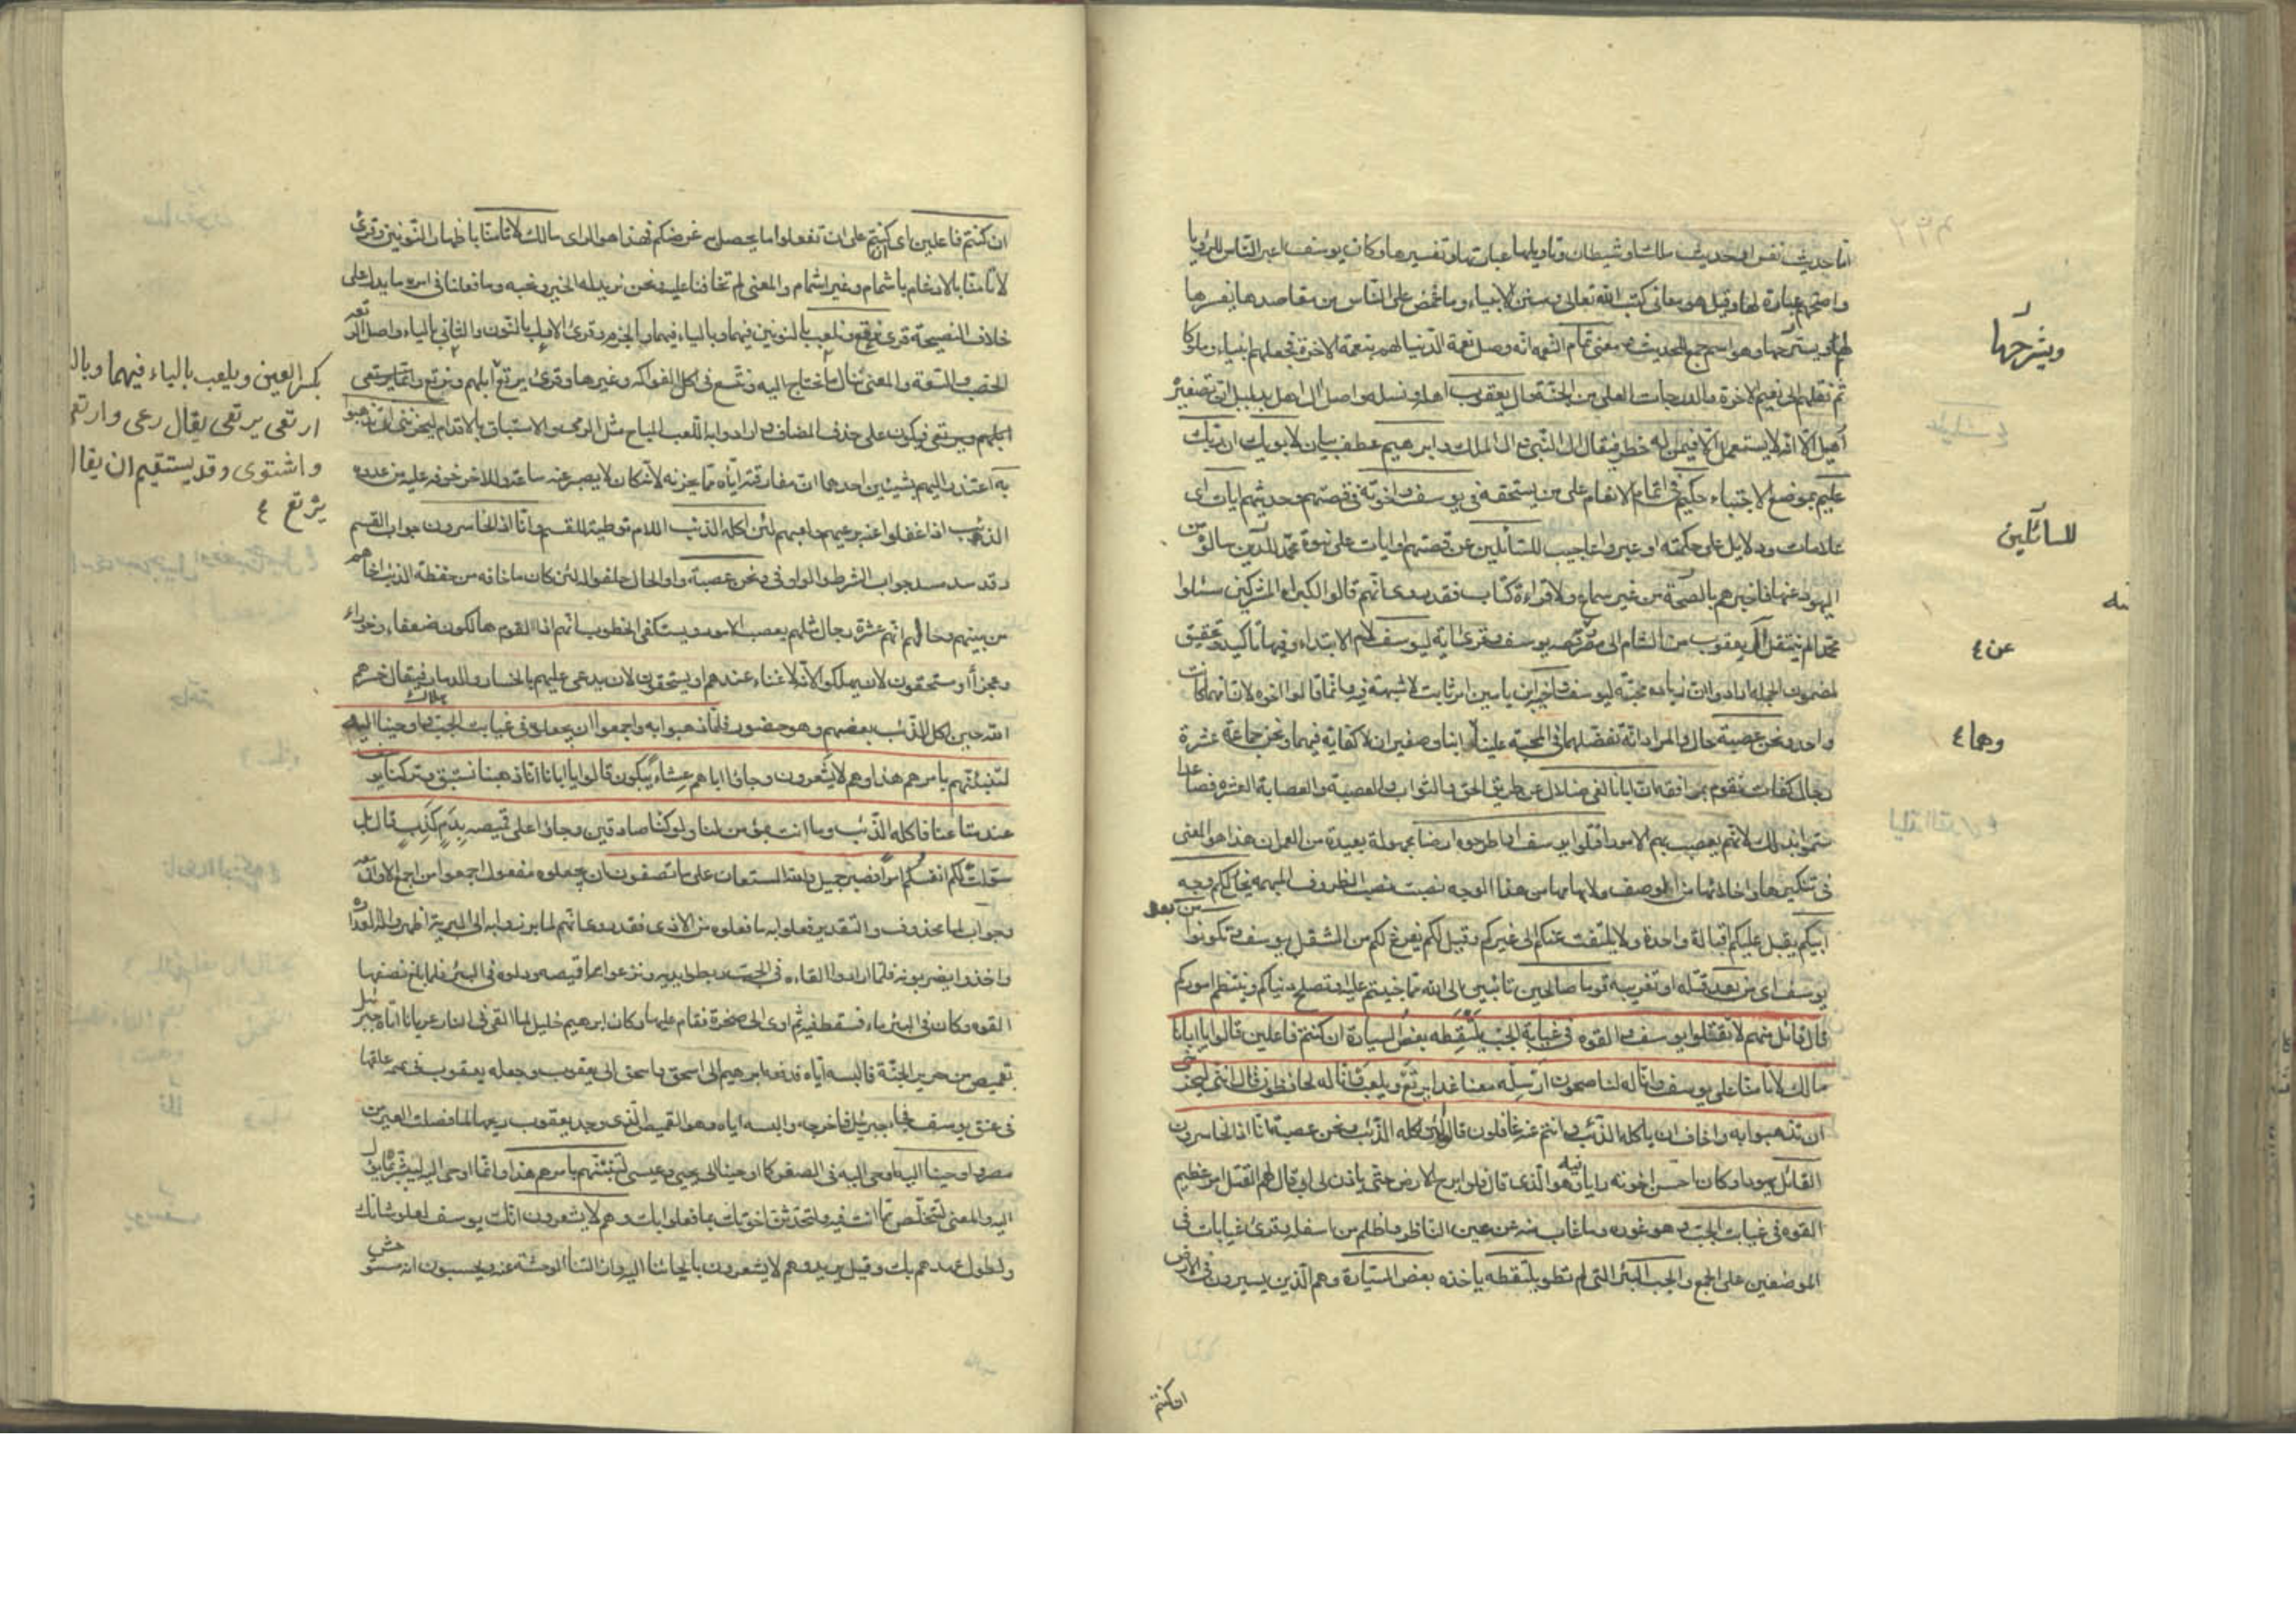 اما حديث نفس او حديث ملك او شيطان وتاويلها عبارتها وتفسيرها وكان يوسف اعبر الناس للرؤيا
واصحهم عبارة لها وقيل هو معاني كتب الله تعالى وسنن الانبياء وما غمض على الناس من مقاصدها يفسرها
لهم ويشرحها وهو اسم جمع للحديث ومعنى تمام النعمة انه وصل نعمة الدنيا لهم بنعمة الاخرة فجعلهم انبياء وملوكا
ثم نقلهم الى نعيم الاخرة والدرجات العلى من الجنة وال يعقوب اهله ونسله واصل ال اهل بدليل ان تصغيره
اهيل الا انه لا يستعمل الا فيمن له خطر فيقال ال النبي وال الملك وابرهيم عطف بيان لابويك ان ربك
عليم بموضع الاجتباء حكيم في اتمام الانعام على من يستحقه في يوسف واخوته في قصتهم وحديثهم ايات اى
علامات ودلايل على حكمته او عبر واعاجيب للسائلين عن قصتهم او ايات على نبوة محمد للذين سالوه من
اليهود عنها فاخبرهم بالصحة من غير سماع ولا قراءة كتاب فقد روى انهم قالوا لكبراء المشركين سئلوا
محمدا لم ينتقل ال يعقوب من الشام الى مصر وعن قصه يوسف وقرئ اية ليوسف لام الابتداء وفيها تاكيد وتحقيق
لمضمون الجملة ارادوا ان زيادة محبته ليوسف واخيه ابن يامين امر ثابت لا شبهة فيه وانما قالوا اخوه لان امهما كانت
واحدة ونحن عصبة حال والمراد انه تفضلهما في المحبة علينا وهما ابنان صغيران لا كفاية فيهما ونحن جماعة عشرة
رجال كفاة نقوم بمرافقه ان ابانا لفي ضلال عن طريق الحق والثواب والعصبة والعصابة العشرة فصاعدا
سموا بذلك لانهم يعصب بهم الامور اقتلوا يوسف او اطرحوه ارضا مجهولة بعيدة من العمران هذا هو المعنى
في تنكيرها واخلائها من الوصف ولابهامها من هذا الوجه نصبت نصب الظروف المبهمة يخل لكم وجه
ابيكم يقبل عليكم اقبالة واحدة ولا يلتفت عنكم الى غيركم وقيل لكم يفرغ لكم من الشغل بيوسف وتكونوا من بعده
يوسف اى من بعد قتله او تغريبه قوما صالحين تائبين الى الله مما جنيتم عليه او تصلح دنياكم وينتظم اموركم
قال قائل منهم لا تقتلوا يوسف والقوه في غيابة الجب يلتقطه بعض السيارة ان كنتم فاعلين قالوا يا ابانا
مالك لا تامنا على يوسف وانا له لناصحون ارسله معنا غدا يرتع ويلعب وانا له لحافظون قال اني ليحزنني
ان تذهبوا به واخاف ان ياكله الذئب وانتم عنه غافلون قالوا لئن اكله الذئب ونحن عصبة انا اذا لخاسرون
القائل يهودا وكان احسن اخوته رايا فيه وهو الذى قال فلن ابرح الارض حتى ياذن لي ابي قال لهم القتل امر عظيم
القوه في غيابت الجب وهو غوره وما غاب منه عن عين الناظر واظلم من اسفله وقرئ غيابات في
الموضعين على الجمع والجب البئر التي لم تطو يلتقطه ياخذه بعض السيارة وهم الذين يسيرون في الارض
ويشرحها
للسائلين
عن ٤
وهما ٤
ان كنتم
ان كنتم فاعلين اى ان كنتم على ان تفعلوا ما يحصل به غرضكم فهذا هو الراى مالك لا تامنا باظهار النونين وقرئ
لا تامنا بالادغام باشمام وغير اشمام والمعنى لم تخافنا عليه ونحن نريد له الخير ونحبه وما فعلنا في امره ما يدل على
خلاف النصيحة قرئ نرتع ونلعب بالنونين فيهما وبالياء فيهما وبالجزم وقرئ الاول بالنون والثاني بالياء واصل الرتعة
الخصب والسعة والمعنى ننال ما نحتاج اليه ونتسع في اكل الفواكه وغيرها وقرئ يرتع ابلهم ونرتع وانما يرتعى
ابلهم ويرتعى فيكون على حذف المضاف وارادوا به اللعب المباح مثل الرمي والاستباق بالاقدام ليحزنني ان تذهبوا
به اعتذر اليهم بشيئين احدهما ان مفارقته اياه مما يحزنه لانه كان لا يصبر عنه ساعة والاخر خوفه عليه من عدوه
الذئب اذا غفلوا عنه برعيهم ولعبهم لئن اكله الذئب اللام توطية للقسم وانا اذا لخاسرون جواب القسم
وقد سد مسد جواب الشرط والواو في ونحن عصبة واو الحال حلفوا له لئن كان ما خافه من خطفة الذئب اخاهم
من بينهم وحالهم انهم عشرة رجال بمثلهم يعصب الامور ويستكفى الخطوب انهم اذا لقوم هالكون ضعفاء وخورا
وعجزا او مستحقون لان يهلكوا لانه لا غناء عندهم او يستحقون لان يدعى عليهم بالخسار والدمار فيقال خسرهم
الله حين اكل الذئب بعضهم وهو حضور فلما ذهبوا به واجمعوا ان يجعلوه في غيابت الجب واوحينا اليه
لتنبئنهم بامرهم هذا وهم لا يشعرون وجاؤا اباهم عشاء يبكون قالوا يا ابانا انا ذهبنا نستبق وتركنا يوسف
عند متاعنا فاكله الذئب وما انت بمؤمن لنا ولو كنا صادقين وجاؤا على قميصه بدم كذب قال بل
سولت لكم انفسكم امرا فصبر جميل والله المستعان على ما تصفون ان يجعلوه مفعول اجمعوا من اجمع الامر
وجواب لما محذوف والتقدير فعلوا به ما فعلوه من الاذى فقد روى انهم لما برزوا به الى البرية اظهروا له العداوة
واخذوا يضربونه فلما ارادوا القاءه في الجب ربطوا يديه ونزعوا قميصه ودلوه في البئر فلما بلغ نصفها
القوه وكان في البئر ماء فسقط فيه ثم اوى الى صخرة فقام عليها وكان ابرهيم خليل لما القى في النار عريانا اتاه جبرئيل
بقميص من حرير الجنة فالبسه اياه فدفعه ابرهيم الى اسحق واسحق الى يعقوب وجعله يعقوب في تميمة علقها
في عنق يوسف فجاء جبرئيل فاخرجه والبسه اياه وهو القميص الذى وجد يعقوب ريحه لما فصلت العير من
مصر واوحينا اليه اوحى اليه في الصغر كما اوحينا الى يحيى وعيسى لتنبئنهم بامرهم هذا وانما اوحى اليه ليبشر بما يؤل
اليه والمعنى لتتخلص مما انت فيه ولتحدثن اخوتك بما فعلوا بك وهم لا يشعرون انك يوسف لعلو شانك
ولطول عهدهم بك وقيل يريد وهم لا يشعرون بايحائنا اليه وازالتنا الوحشة عنه ويحسبون انه مستوحش
بكسر العين ويلعب بالياء فيهما وبال
ارتعى يرتعى يقال رعى وارتعى
واشتوى وقد يستقيم ان يقال
يرتع ٤